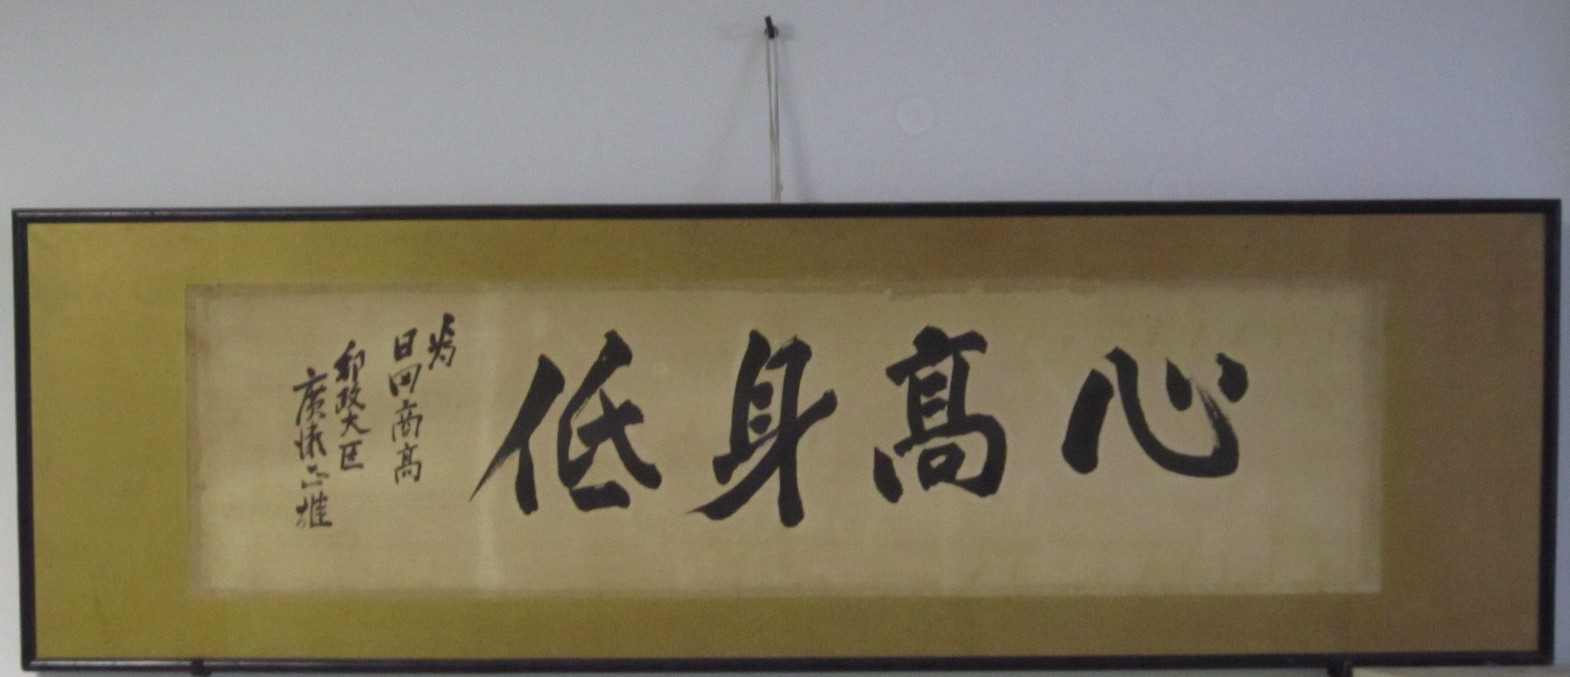 心高身低
為
日田商高
郵政大臣
廣瀬正雄